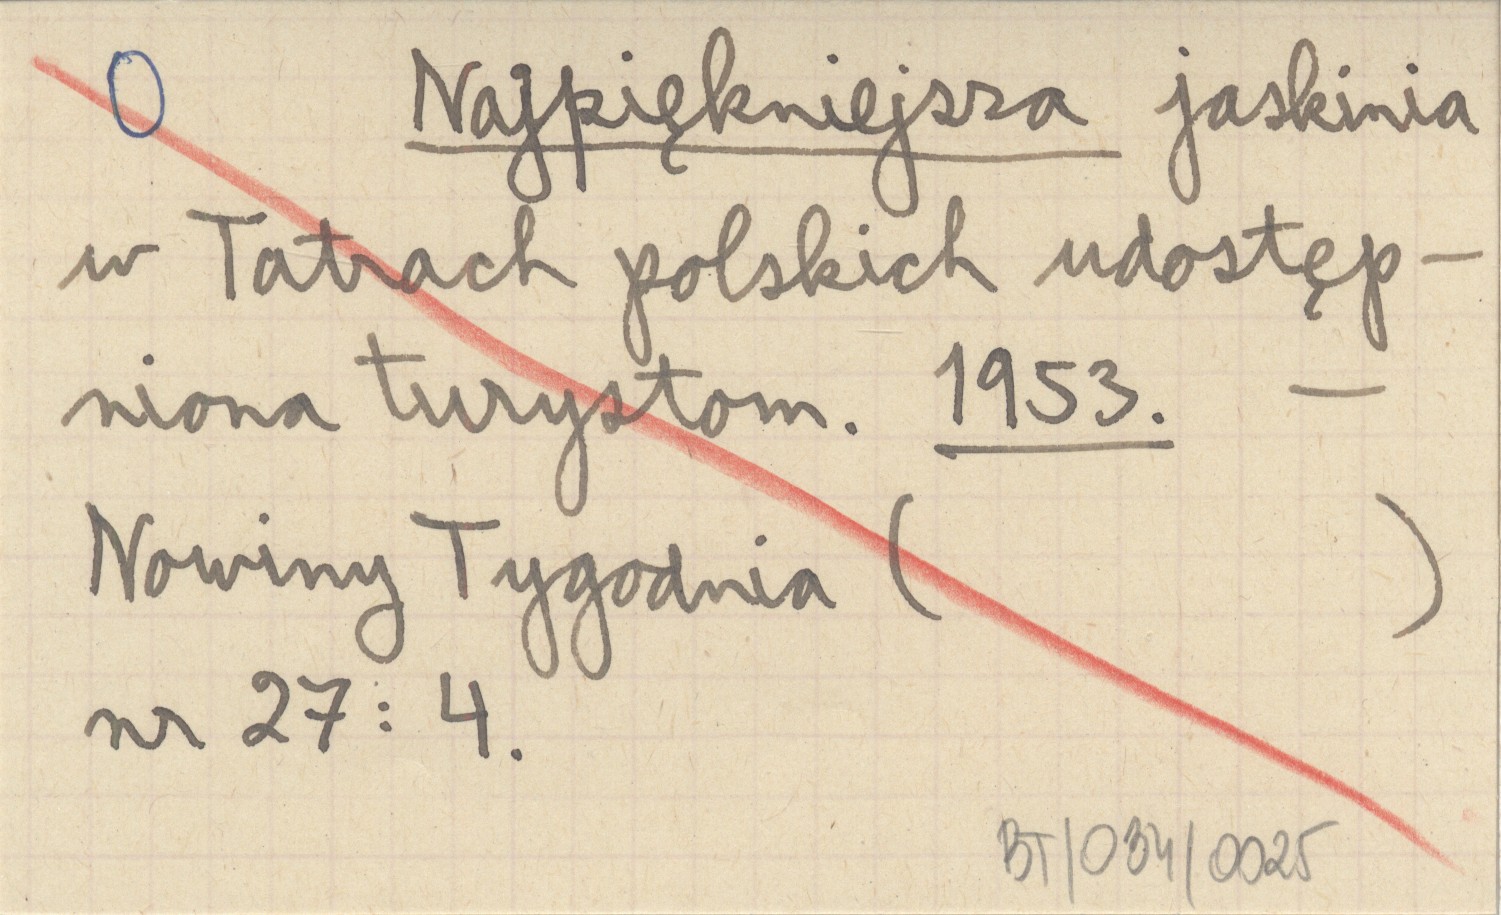 0 Najpiękniejsza jaskinia
w Tatrach polskich udostęp-
niona turystom. 1953. —
Nowiny Tygodnia ( )
nr 27: 4.
BT/034/0025